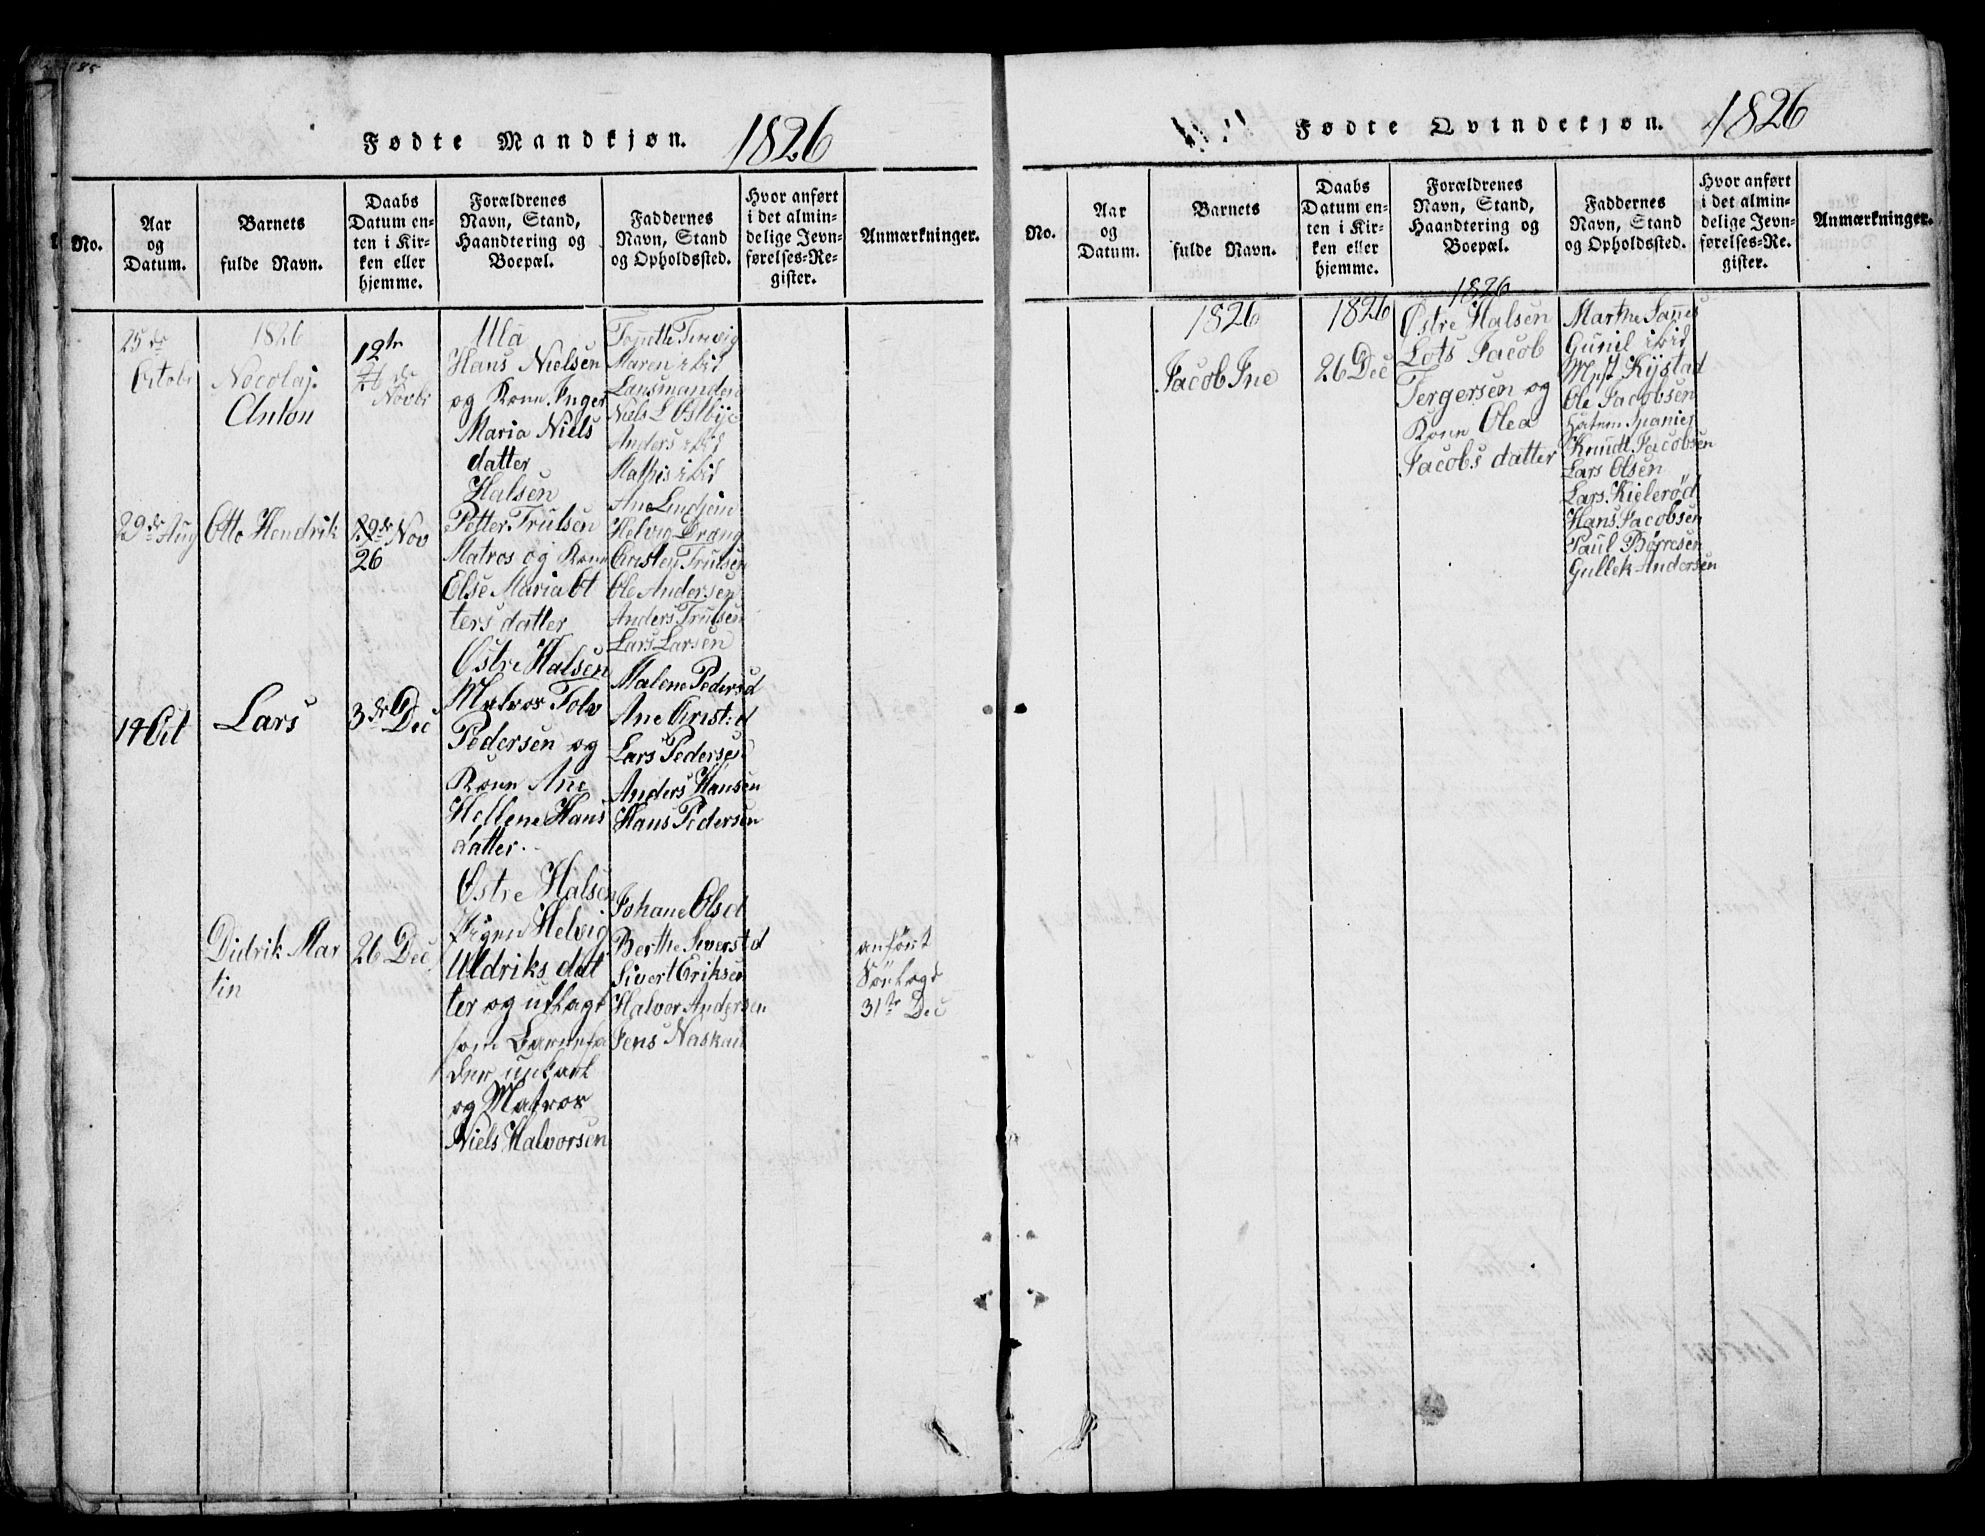 85
Fødte Mandkjøn. 1826
No.
Aar
og
Datum.
Barnets
fulde Navn.
Daabs
Datum en-
ten i Kir-
ken eller
hjemme.
Forældrenes
Navn, Stand,
Haandtering og
Boepæl.
Faddernes
Navn, Stand
og Opholdssted.
Hvor anført
i det almin-
delige Jevn-
førelses-Re-
gister.
Anmærkninger.
25de
Octobr
1826
Nocolaj
Anton
12te
Novbr
Ula
Hans Nielsen
og Kone Inger
Maria Niels
datter
Maren ibid
Lansmanden
Niels L Østbye
Anders ibid
Mathis ibid
29de Aug
Otto Hendrik
Nov
26
Halsen
Petter Trulsen
Matros og Kone
Else Maria Ot
ters datter
Ane
Helvig
Christen Trulsen
Ole Andersen
Anders Trulsen
Lars Larsen
14 Oct
Lars
3de Dec
Østre Halsen
Matros Tolv
Pedersen og
Kone Ane
Hellene Hans
datter
Malene Pedersd
Ane Christ:d
Lars Pedersen
Anders Hansen
Hans Pedersen
Didrik Mar
tin
26 Dec
Østre Halsen
Pigen Helvig
Uldriks dat
ter og udlagt
som Barnefa
der unkarl
og Matros
Niels Halvorsen
Johane Olsd
Berthe Siverstd
Sivert Eriksen
Halvor Andersen
Jens Naskau
anført
Søndags
31te Dec
Fødte Qvindekjøn. 1826
No.
Aar
og
Datum.
Barnets
fulde Navn.
Daabs
Datum en-
ten i Kir-
ken eller
hjemme.
Forældrenes
Navn, Stand,
Haandtering og
Boepæl.
Faddernes
Navn, Stand
og Opholdssted.
Hvor anført
i det almin-
delige Jevn-
førelses-Re-
gister.
Anmærkninger.
1826
Jacob Ine
1826
26 Dec
1826
Østre Halsen
Lots Jacob
Tergersen og
Kone Olea
Jacobs datter
Marthe Sannes
Gunil ibid
Kystad
Ole Jacobsen
Knudt Jacobsen
Lars Olsen
Lars Kielerød
Hans Jacobsen
Paul Børresen
Gullek Andersen